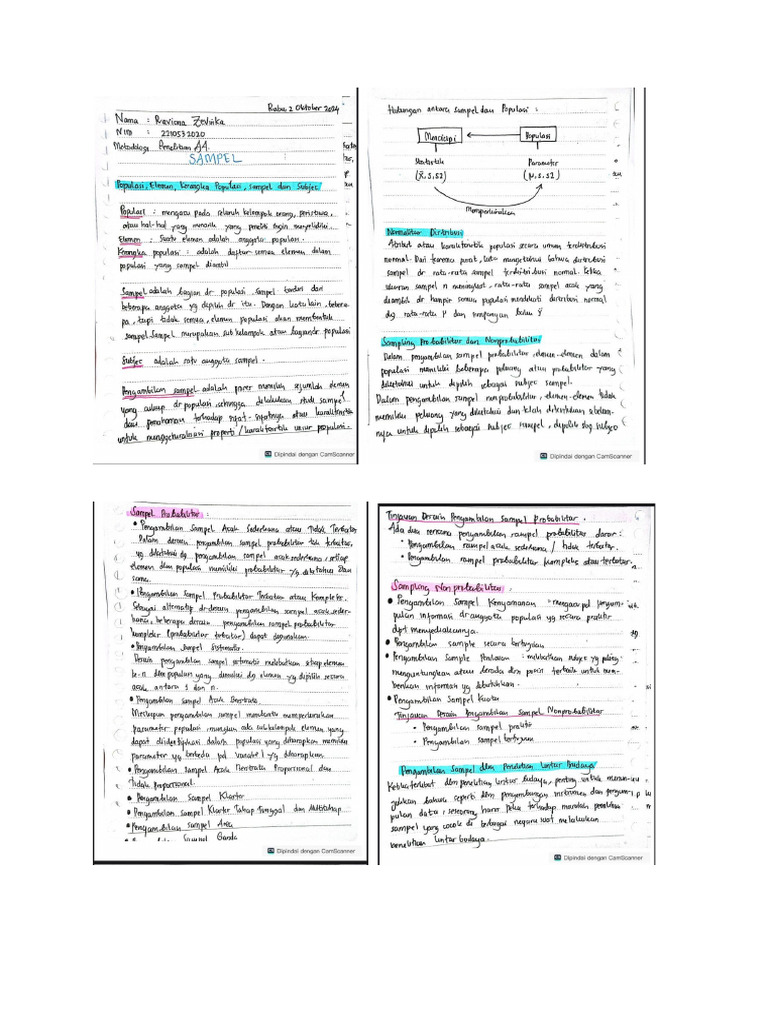 Rabu 2 Oktober 2024
Nama :
NIM : 2210532020
Metodologi Penelitian A1.
SAMPEL
Populasi, Elemen, Kerangka Populasi, Sampel dan Subjec
Populasi : mengacu pada seluruh kelompok orang, peristiwa,
atau hal-hal yang menarik yang peneliti ingin menyelidiki.
Elemen : Suatu elemen adalah anggota populasi.
Kerangka populasi : adalah daftar semua elemen dalam
populasi yang sampel diambil
Sampel adalah bagian dr populasi. Sampel terdiri dari
beberapa anggota yg dipilih dr itu. Dengan kata lain, bebera-
pa, tapi tidak semua, elemen populasi akan membentuk
sampel. Sampel merupakan sub kelompok atau bagian dr populasi
Subjec adalah satu anggota sampel.
Pengambilan sampel adalah proses memilih sejumlah elemen
yang cukup dr populasi, sehingga dilakukan studi sampel
dan pemahaman terhadap sifat-sifatnya atau karakteristik
untuk menggeneralisasi properti / karakteristik unsur populasi.
Dipindai dengan CamScanner
Hubungan antara sampel dan Populasi :
Mencicipi
Populasi
Statistik
Parameter
(X̄, S, S2)
(μ, σ, σ2)
Memperkirakan
Normalitas Distribusi
Atribut atau karakteristik populasi secara umum terdistribusi
normal. Dari teorema pusat, kita mengetahui bahwa distribusi
sampel dr rata-rata sampel terdistribusi normal. Ketika
ukuran sampel n meningkat, rata-rata sampel acak yang
diambil dr hampir semua populasi mendekati distribusi normal
dg rata-rata
Sampling Probabilitas dan Nonprobabilitas
Dalam pengambilan sampel probabilitas, elemen-elemen dalam
populasi memiliki beberapa peluang atau probabilitas yang
diketahui untuk dipilih sebagai subjec sampel.
Dalam pengambilan sampel nonprobabilitas, elemen-elemen tidak
memiliki peluang yang diketahui dan telah ditentukan sebelum-
nya untuk dipilih sebagai subjec sampel, dipilih sbg subjec
Dipindai dengan CamScanner
Sampel Probabilitas :
• Pengambilan Sampel Acak Sederhana atau Tidak Terbatas
Dalam desain pengambilan sampel probabilitas tak terbatas,
yg diketahui dg pengambilan sampel acak sederhana, setiap
elemen dlm populasi memiliki probabilitas yg diketahui dan
sama.
• Pengambilan Sampel Probabilitas Terbatas atau Kompleks.
Sebagai alternatif dr desain pengambilan sampel acak seder-
hana, beberapa desain pengambilan sampel probabilitas
kompleks (probabilitas terbatas) dapat digunakan.
• Pengambilan Sampel Sistematis.
Desain pengambilan sampel sistematis melibatkan setiap elemen
ke-n dlm populasi yang dimulai dg elemen yg dipilih secara
acak antara 1 dan n.
• Pengambilan Sampel Acak Berstrata.
Meskipun pengambilan sampel membantu memperkirakan
parameter populasi, mungkin ada sub kelompok elemen yang
dapat diidentifikasi dalam populasi yang diharapkan memiliki
parameter yg berbeda pd variabel yg diharapkan.
• Pengambilan Sampel Acak Berstrata Proporsional dan
Tidak Proporsional.
• Pengambilan Sampel Klaster
• Pengambilan Sampel Klaster Tahap Tunggal dan Multitahap
• Pengambilan Sampel Area
Sampel Ganda
Dipindai dengan CamScanner
Tinjauan Desain Pengambilan Sampel Probabilitas.
Ada dua rencana pengambilan sampel probabilitas dasar:
• Pengambilan sampel acak sederhana / tidak terbatas.
• Pengambilan sampel probabilitas kompleks atau terbatas.
Sampling Nonprobabilitas :
• Pengambilan Sampel Kenyamanan mengacu pd pengum-
pulan informasi dr anggota populasi yg secara praktis
dpt menyediakannya.
• Pengambilan sample secara bertujuan
• Pengambilan Sample Penilaian : melibatkan subjec yg paling
menguntungkan atau berada dlm posisi terbaik untuk mem-
berikan informasi yg dibutuhkan.
• Pengambilan Sampel Kuota
Tinjauan Desain Pengambilan Sampel Nonprobabilitas
• Pengambilan Sampel praktis
• Pengambilan Sampel bertujuan
Pengambilan Sampel dlm Penelitian Lintas Budaya
Ketika terlibat dlm penelitian lintas budaya, penting untuk
bahwa seperti dlm pengembangan instrumen dan pengum-
pulan data, seseorang harus peka terhadap masalah pemilihan
sampel yang cocok di berbagai negara saat melakukan
penelitian lintas budaya.
Dipindai dengan CamScanner